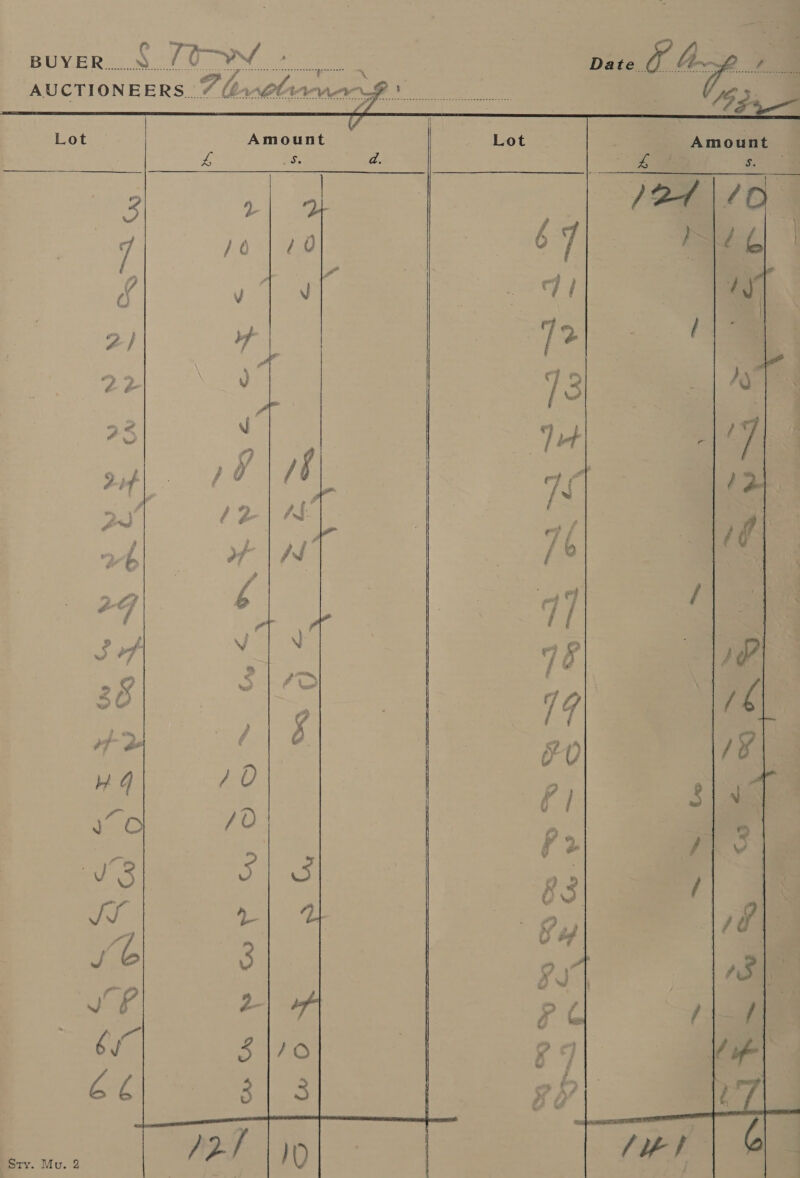 BUYER S TOW Date
AUCTIONEERS
Lot Amount Lot Amount
£ s. d. £ s.
121 10
3 2 2
7 10 10 67 1 16
8 5 5 71 15
21 4 72 1
22 5 73 15
23 5 74 - 17
24 18 18 75 12
25 12 15
26 4 15 76 18
29 6 77 1
34 5 5 78 18
38 3 10 79 16
42 1 8 80 18
49 10 81 3 5
50 10 82 1 3
53 3 3 83 1
55 2 2 84 18
56 3 85 13
58 2 4 86 1 1
65 3 10 87 14
66 3 3 88 17
121 10 141 6
Sty. Mu. 2